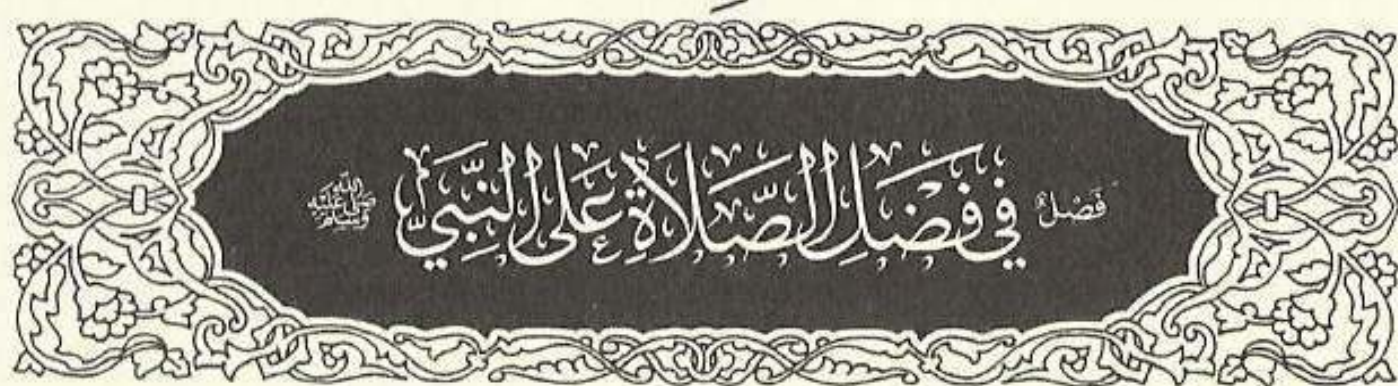 فَصْلٌ فِي فَضْلِ الصَّلَاةِ عَلَى النَّبِيِّ ﷺ